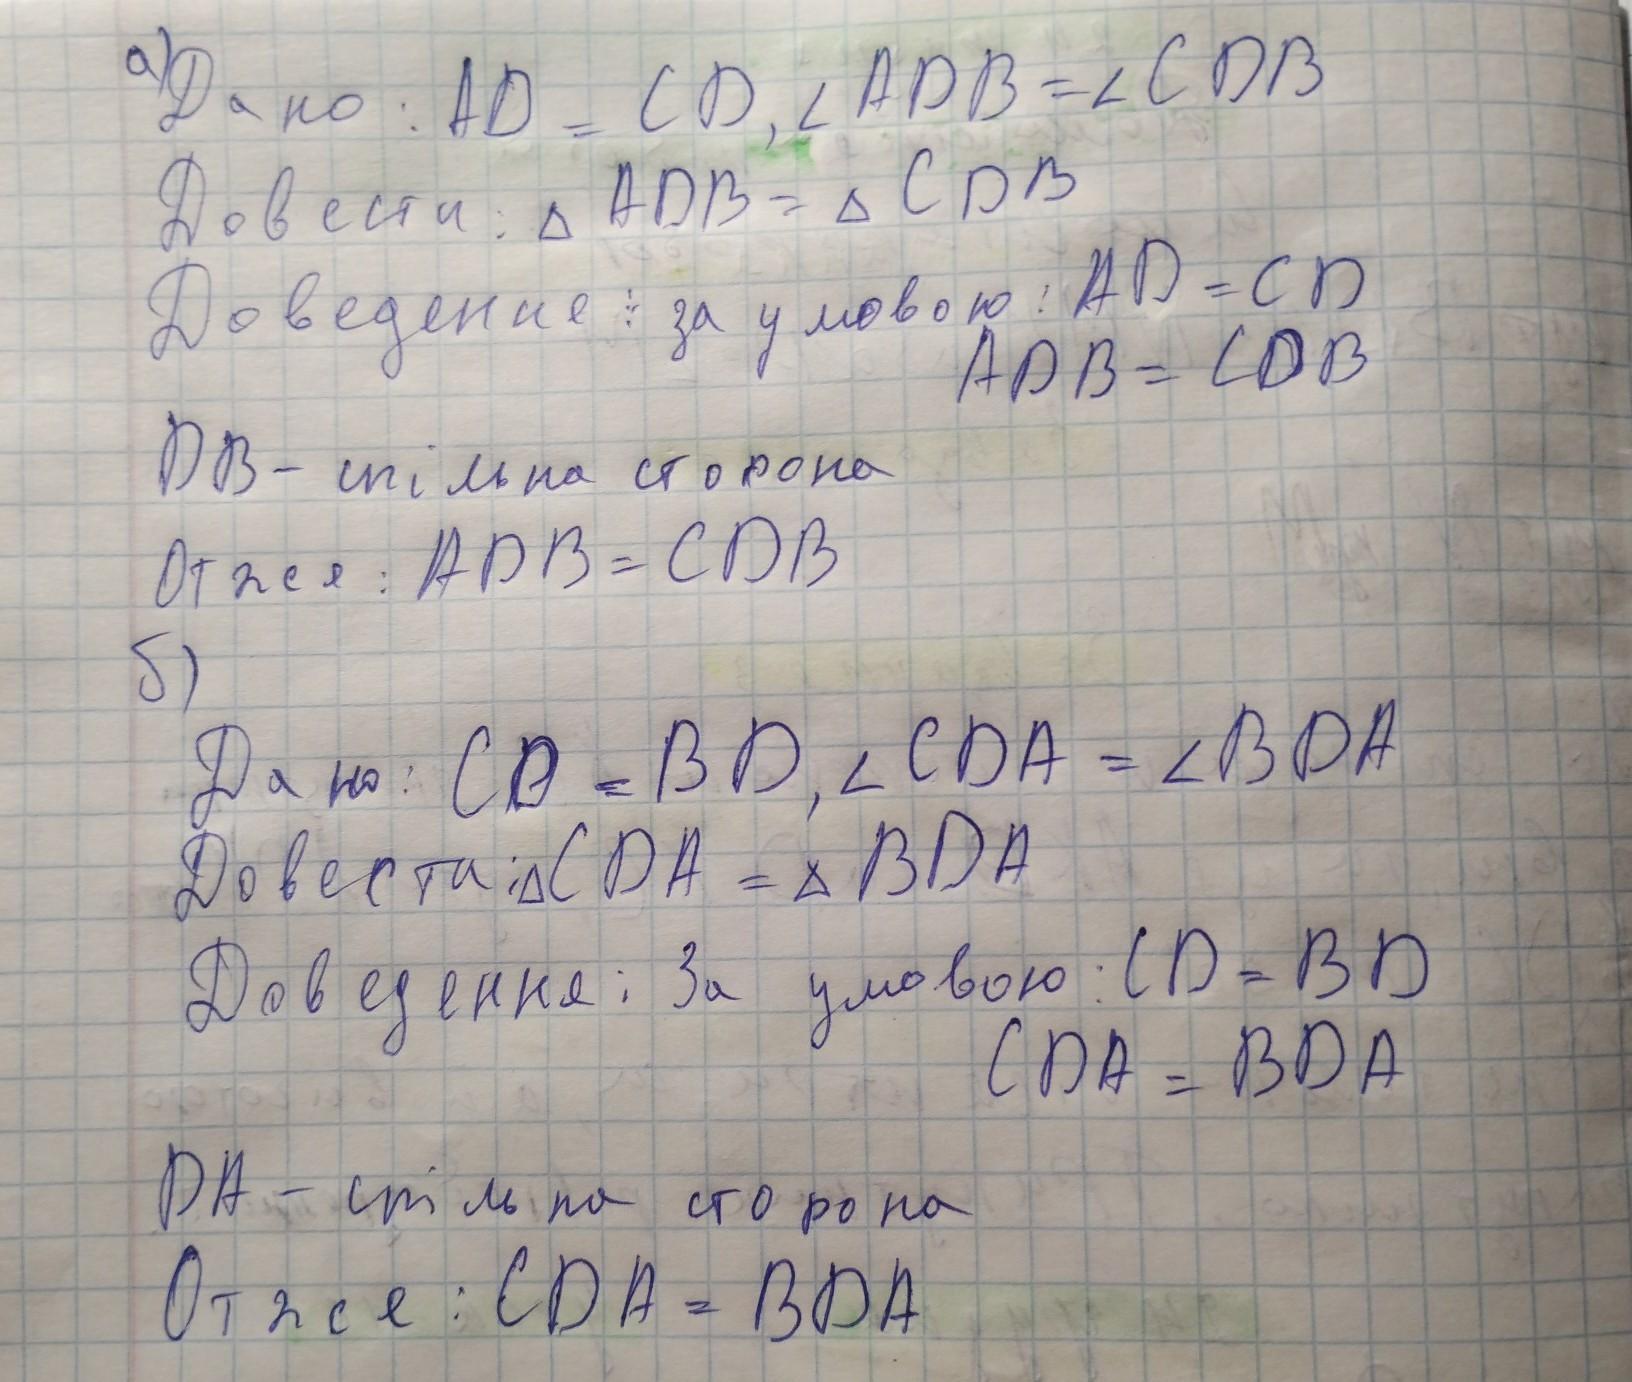 а)
Дано: AD = CD, ∠ADB = ∠CDB
Довести: △ADB = △CDB
Доведення: за умовою: AD = CD
ADB = CDB
DB - спільна сторона
Отже: ADB = CDB
б)
Дано: CD = BD, ∠CDA = ∠BDA
Довести: △CDA = △BDA
Доведення: За умовою: CD = BD
CDA = BDA
DA - спільна сторона
Отже: CDA = BDA